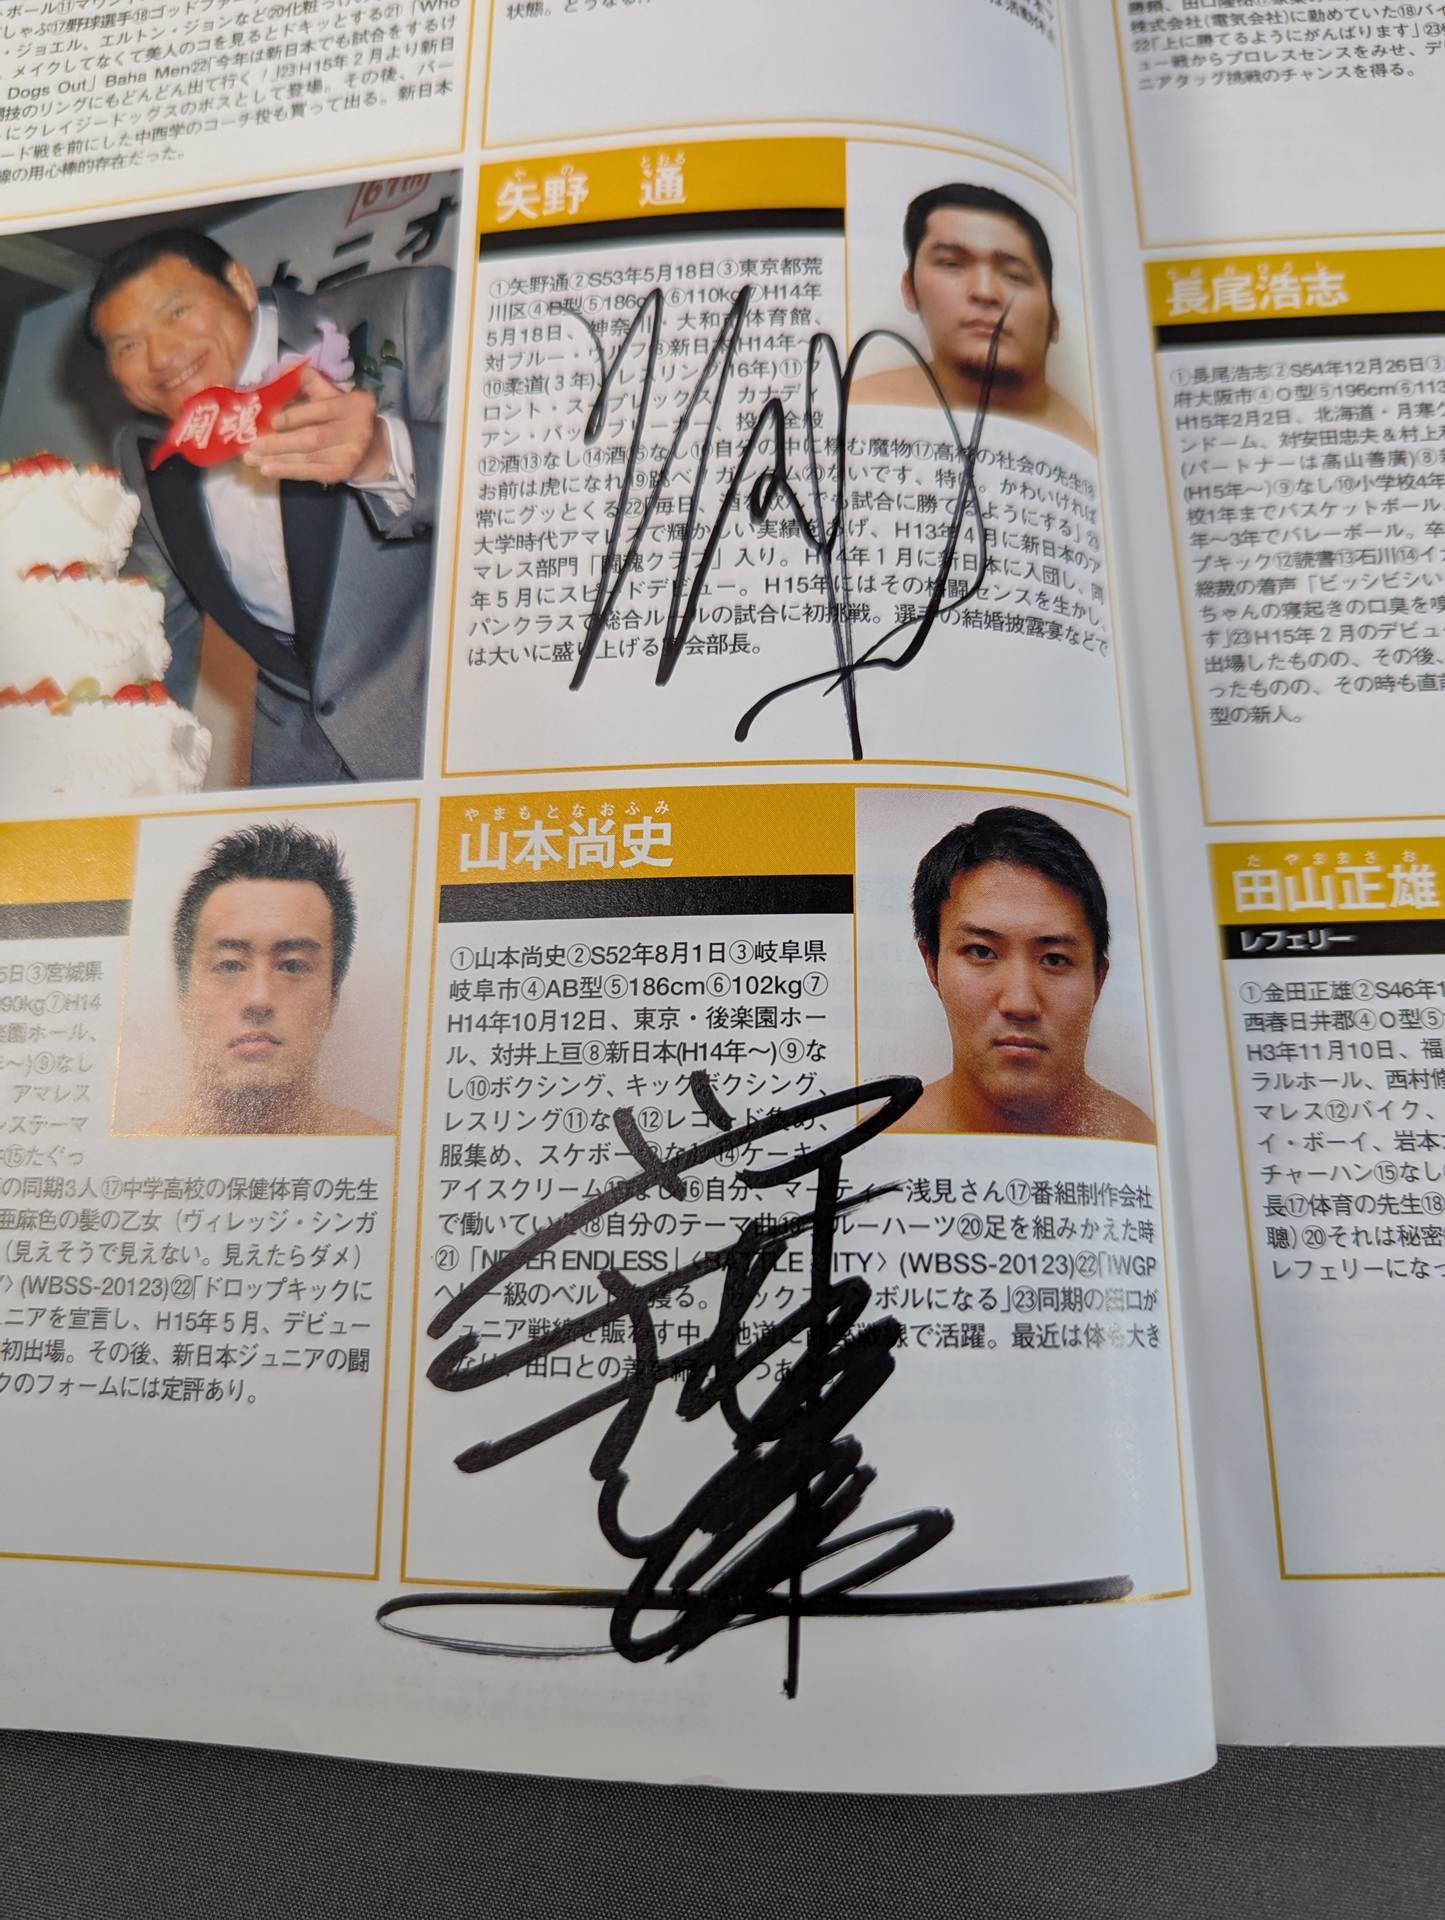 しゃぶ⑰野球選手⑱ゴッドファー
・ジョエル、エルトン・ジョンなど⑳化粧っけの
、メイクしてなくて美人のコを見るとドキッとする㉑「Who
Dogs Out」Baha Men㉒「今年は新日本でも試合をするけ
技のリングにもどんどん出て行く！」㉓H15年2月より新日
にクレイジードッグスのボスとして登場。その後、バー
ード戦を前にした中西学のコーチ役も買って出る。新日本
線の用心棒的存在だった。
67th
闘魂
やの とおる
矢野 通
①矢野通②S53年5月18日③東京都荒
川区④B型⑤186cm⑥110kg⑦H14年
5月18日、神奈川・大和市体育館、
対ブルー・ウルフ⑧新日本(H14年〜)
⑩柔道(3年)、レスリング(16年)⑪フ
ロント・スープレックス、カナディ
アン・バックブリーカー、投げ全般
⑫酒⑬なし⑭酒⑮なし⑯自分の中に棲む魔物⑰高校の社会の先生⑱
お前は虎になれ⑲跳べ！ガンダム⑳ないです、特に。かわいければ
常にグッとくる㉒「毎日、酒を飲んでも試合に勝てるようにする」㉓
大学時代アマレスで輝かしい実績をあげ、H13年4月に新日本のア
マレス部門「闘魂クラブ」入り。H14年1月に新日本に入団し、同
年5月にスピードデビュー。H15年にはその格闘センスを生かし、
パンクラスで総合ルールの試合に初挑戦。選手の結婚披露宴などで
は大いに盛り上げる宴会部長。
やまもとなおふみ
山本尚史
①山本尚史②S52年8月1日③岐阜県
岐阜市④AB型⑤186cm⑥102kg⑦
H14年10月12日、東京・後楽園ホー
ル、対井上亘⑧新日本(H14年〜)⑨な
し⑩ボクシング、キックボクシング、
レスリング⑪なし⑫レコード集め、
服集め、スケボー⑬なし⑭ケーキ、
アイスクリーム⑮なし⑯自分、マーティー浅見さん⑰番組制作会社
で働いていた⑱自分のテーマ曲⑲ブルーハーツ⑳足を組みかえた時
㉑「NEVER ENDLESS」〈BATTLE CITY〉(WBSS-20123)㉒「IWGP
ヘビー級のベルトを獲る。セックスシンボルになる」㉓同期の田口が
ジュニア戦線を賑わす中、地道に前座戦線で活躍。最近は体も大き
くなり、田口との差を縮めつつある。
5日③宮城県
90kg⑦H14
楽園ホール、
〜)⑨なし
アマレス
ステーマ
⑮たぐっ
の同期3人⑰中学高校の保健体育の先生
亜麻色の髪の乙女（ヴィレッジ・シンガ
（見えそうで見えない。見えたらダメ）
〉(WBSS-20123)㉒「ドロップキックに
ニアを宣言し、H15年5月、デビュー
初出場。その後、新日本ジュニアの闘
クのフォームには定評あり。
株式会社(電気会社)に勤めていた⑱バイ
㉒「上に勝てるようにがんばります」㉓
ュー戦からプロレスセンスをみせ、デ
ニアタッグ挑戦のチャンスを得る。
ながおひろし
長尾浩志
①長尾浩志②S54年12月26日③
府大阪市④O型⑤196cm⑥113
H15年2月2日、北海道・月寒グ
ンドーム、対安田忠夫＆村上和
(パートナーは高山善廣)⑧新
(H15年〜)⑨なし⑩小学校4年
校1年までバスケットボール、
年〜3年でバレーボール。卒
プキック⑫読書⑬石川⑭イカ
総裁の着声「ビッシビシい
ちゃんの寝起きの口臭を嗅
す」㉓H15年2月のデビュ
出場したものの、その後、
ったものの、その時も直前
型の新人。
たやままさお
田山正雄
レフェリー
①金田正雄②S46年1
西春日井郡④O型⑤
H3年11月10日、福
ラルホール、西村修
マレス⑫バイク、
イ・ボーイ、岩本
チャーハン⑮なし
長⑰体育の先生⑱
聰)⑳それは秘密
レフェリーになっ